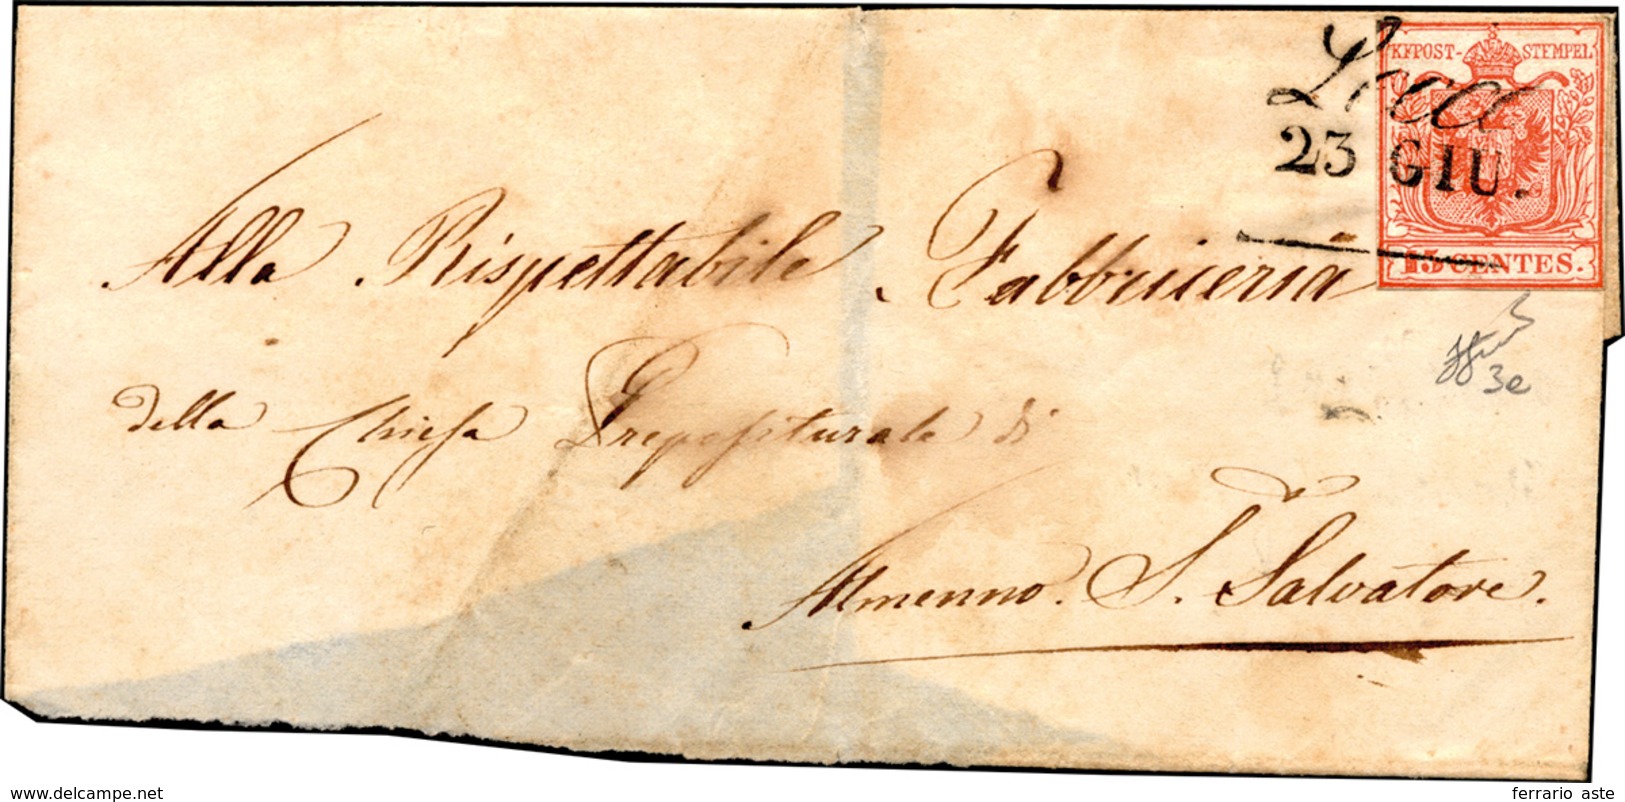 Lecco
23 GIU.
KKPOST-STEMPEL
15 CENTES.
Alla Rispettabile Fabbriceria
della Chiesa Prepositurale di
Almenno. S. Salvatore.
3e
delcampe.net
ferrario aste